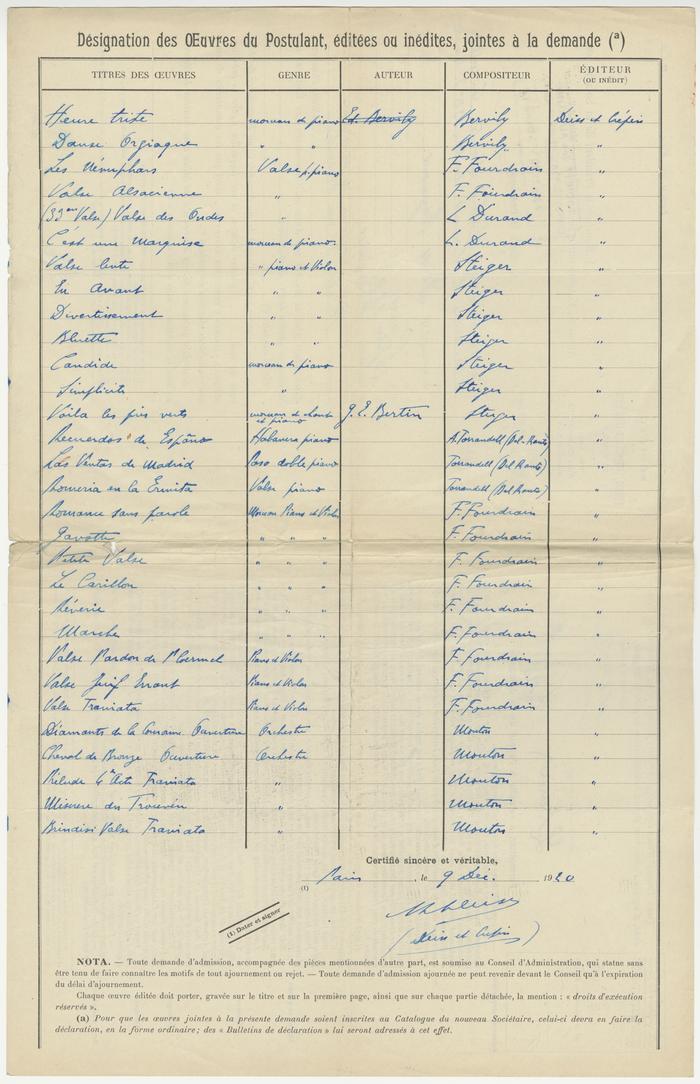 Désignation des Œuvres du Postulant, éditées ou inédites, jointes à la demande (a)
TITRES DES ŒUVRES GENRE AUTEUR COMPOSITEUR ÉDITEUR
(OU INÉDIT)
Heure triste morceau de piano Ed. Bervily Bervily Deiss et Crépin
Danse Orgiaque " " Bervily "
Les Nénuphars Valse p. piano F. Fourdrain "
Valse Alsacienne " F. Fourdrain "
(33eme Valse) Valse des Ondes " L. Durand "
C'est une Marquise morceau de piano. L. Durand "
Valse lente " piano et Violon Steiger "
En Avant " " Steiger "
Divertissement " " Steiger "
Bluette " " Steiger "
Candide morceau de piano Steiger "
Simplicité " Steiger "
Voilà les pois verts morceau de chant et piano G. E. Bertin Steiger "
Recuerdos de España Habanera piano A. Torrandell (Del Ronte) "
Las Ventas de Madrid Paso doble piano Torrandell (Del Ronte) "
Romeria en la Ermita Valse piano Torrandell (Del Ronte) "
Romance sans parole Morceau Piano et Violon F. Fourdrain "
Gavotte " " " F. Fourdrain "
Petite Valse " " " F. Fourdrain "
Le Carillon " " " F. Fourdrain "
Rêverie " " " F. Fourdrain "
Marche " " " F. Fourdrain "
Valse Pardon de Ploermel Piano et Violon F. Fourdrain "
Valse Juif Errant Piano et Violon F. Fourdrain "
Valse Traviata Piano et Violon F. Fourdrain "
Diamants de la Couronne Ouverture Orchestre Mouton "
Cheval de Bronze Ouverture Orchestre Mouton "
Prélude 4e Acte Traviata " Mouton "
Miserere du Trouvère " Mouton "
Brindisi Valse Traviata " Mouton "
Certifié sincère et véritable,
(1) Paris, le 9 Déc. 1920
(1) Dater et signer
(Deiss et Crépin)
NOTA. — Toute demande d'admission, accompagnée des pièces mentionnées d'autre part, est soumise au Conseil d'Administration, qui statue sans
être tenu de faire connaître les motifs de tout ajournement ou rejet. — Toute demande d'admission ajournée ne peut revenir devant le Conseil qu'à l'expiration
du délai d'ajournement.
Chaque œuvre éditée doit porter, gravée sur le titre et sur la première page, ainsi que sur chaque partie détachée, la mention : « droits d'exécution
réservés ».
(a) Pour que les œuvres jointes à la présente demande soient inscrites au Catalogue du nouveau Sociétaire, celui-ci devra en faire la
déclaration, en la forme ordinaire; des « Bulletins de déclaration » lui seront adressés à cet effet.